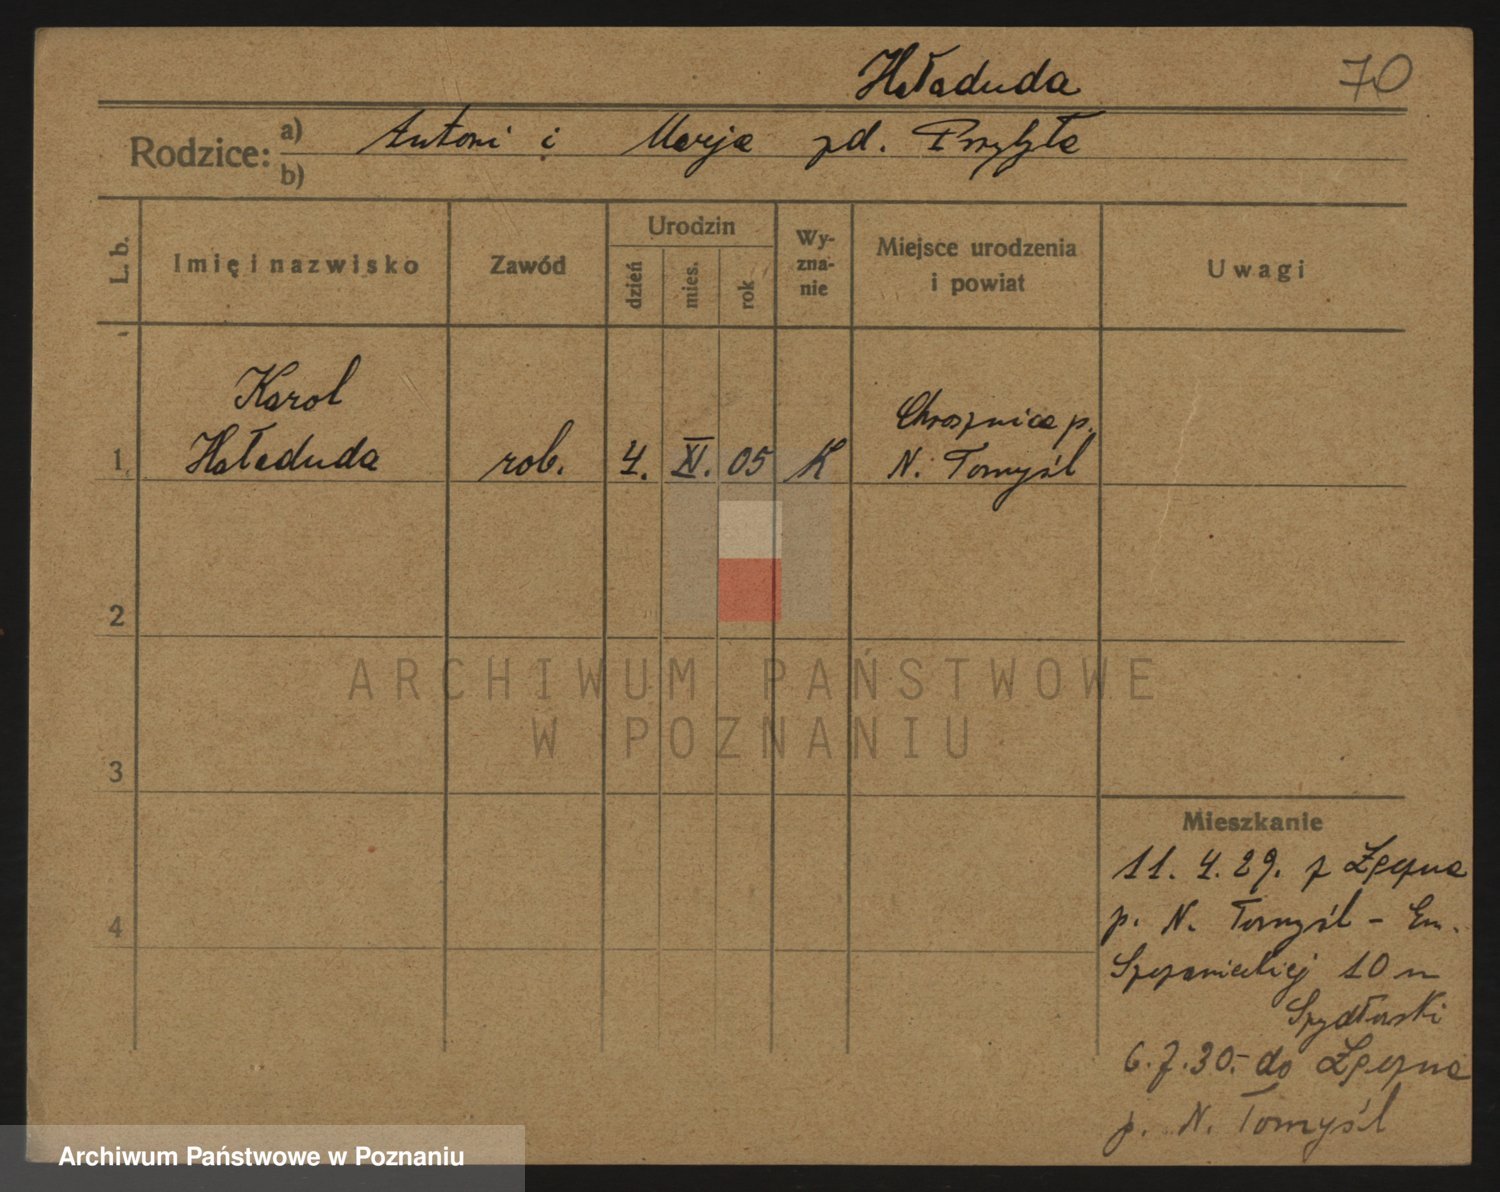 Haładuda 70
Rodzice: a) Antoni i Marja zd. Przybyła
b)
L. b. Imię i nazwisko Zawód Urodzin dzień mies. rok Wy-zna-nie Miejsce urodzenia i powiat Uwagi
Karol
Haładuda
1. rob. 4. XI. 05 K
Chrośnica p.
N. Tomyśl
2
3
4
Mieszkanie
11. 4. 29. z
p. N. Tomyśl - Em.
Szczanieckiej 10 m
Szydłowski
6.7.30.- do
p. N. Tomyśl
ARCHIWUM PAŃSTWOWE
W POZNANIU
Archiwum Państwowe w Poznaniu